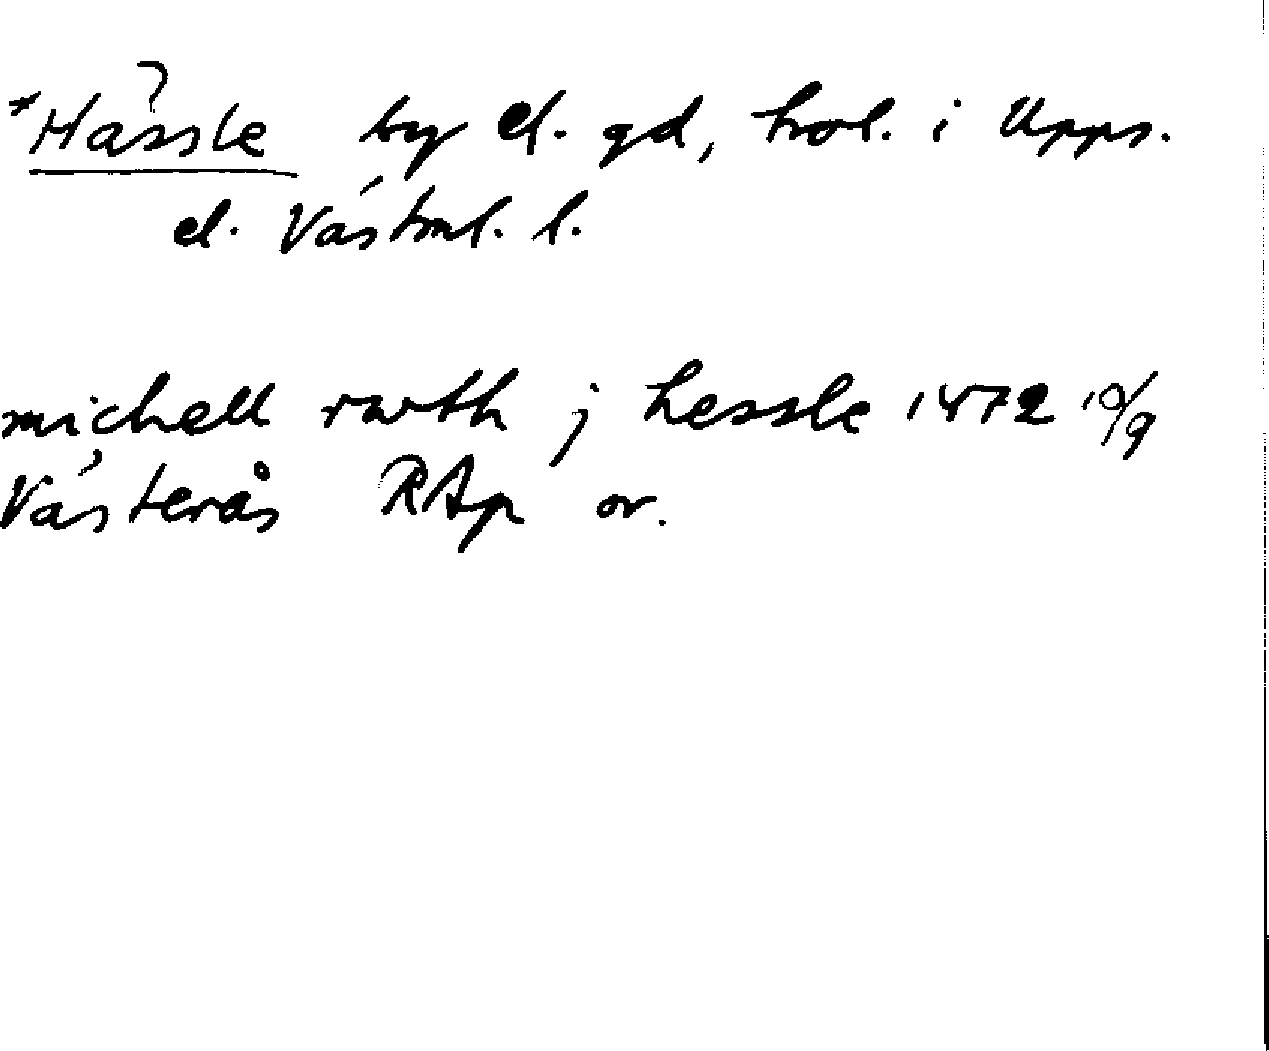 *Hässle by el. gd, trol. i Upps.
el. Västml. l.
michell rwth j hessle 1472 10/9
Västerås RAp or.